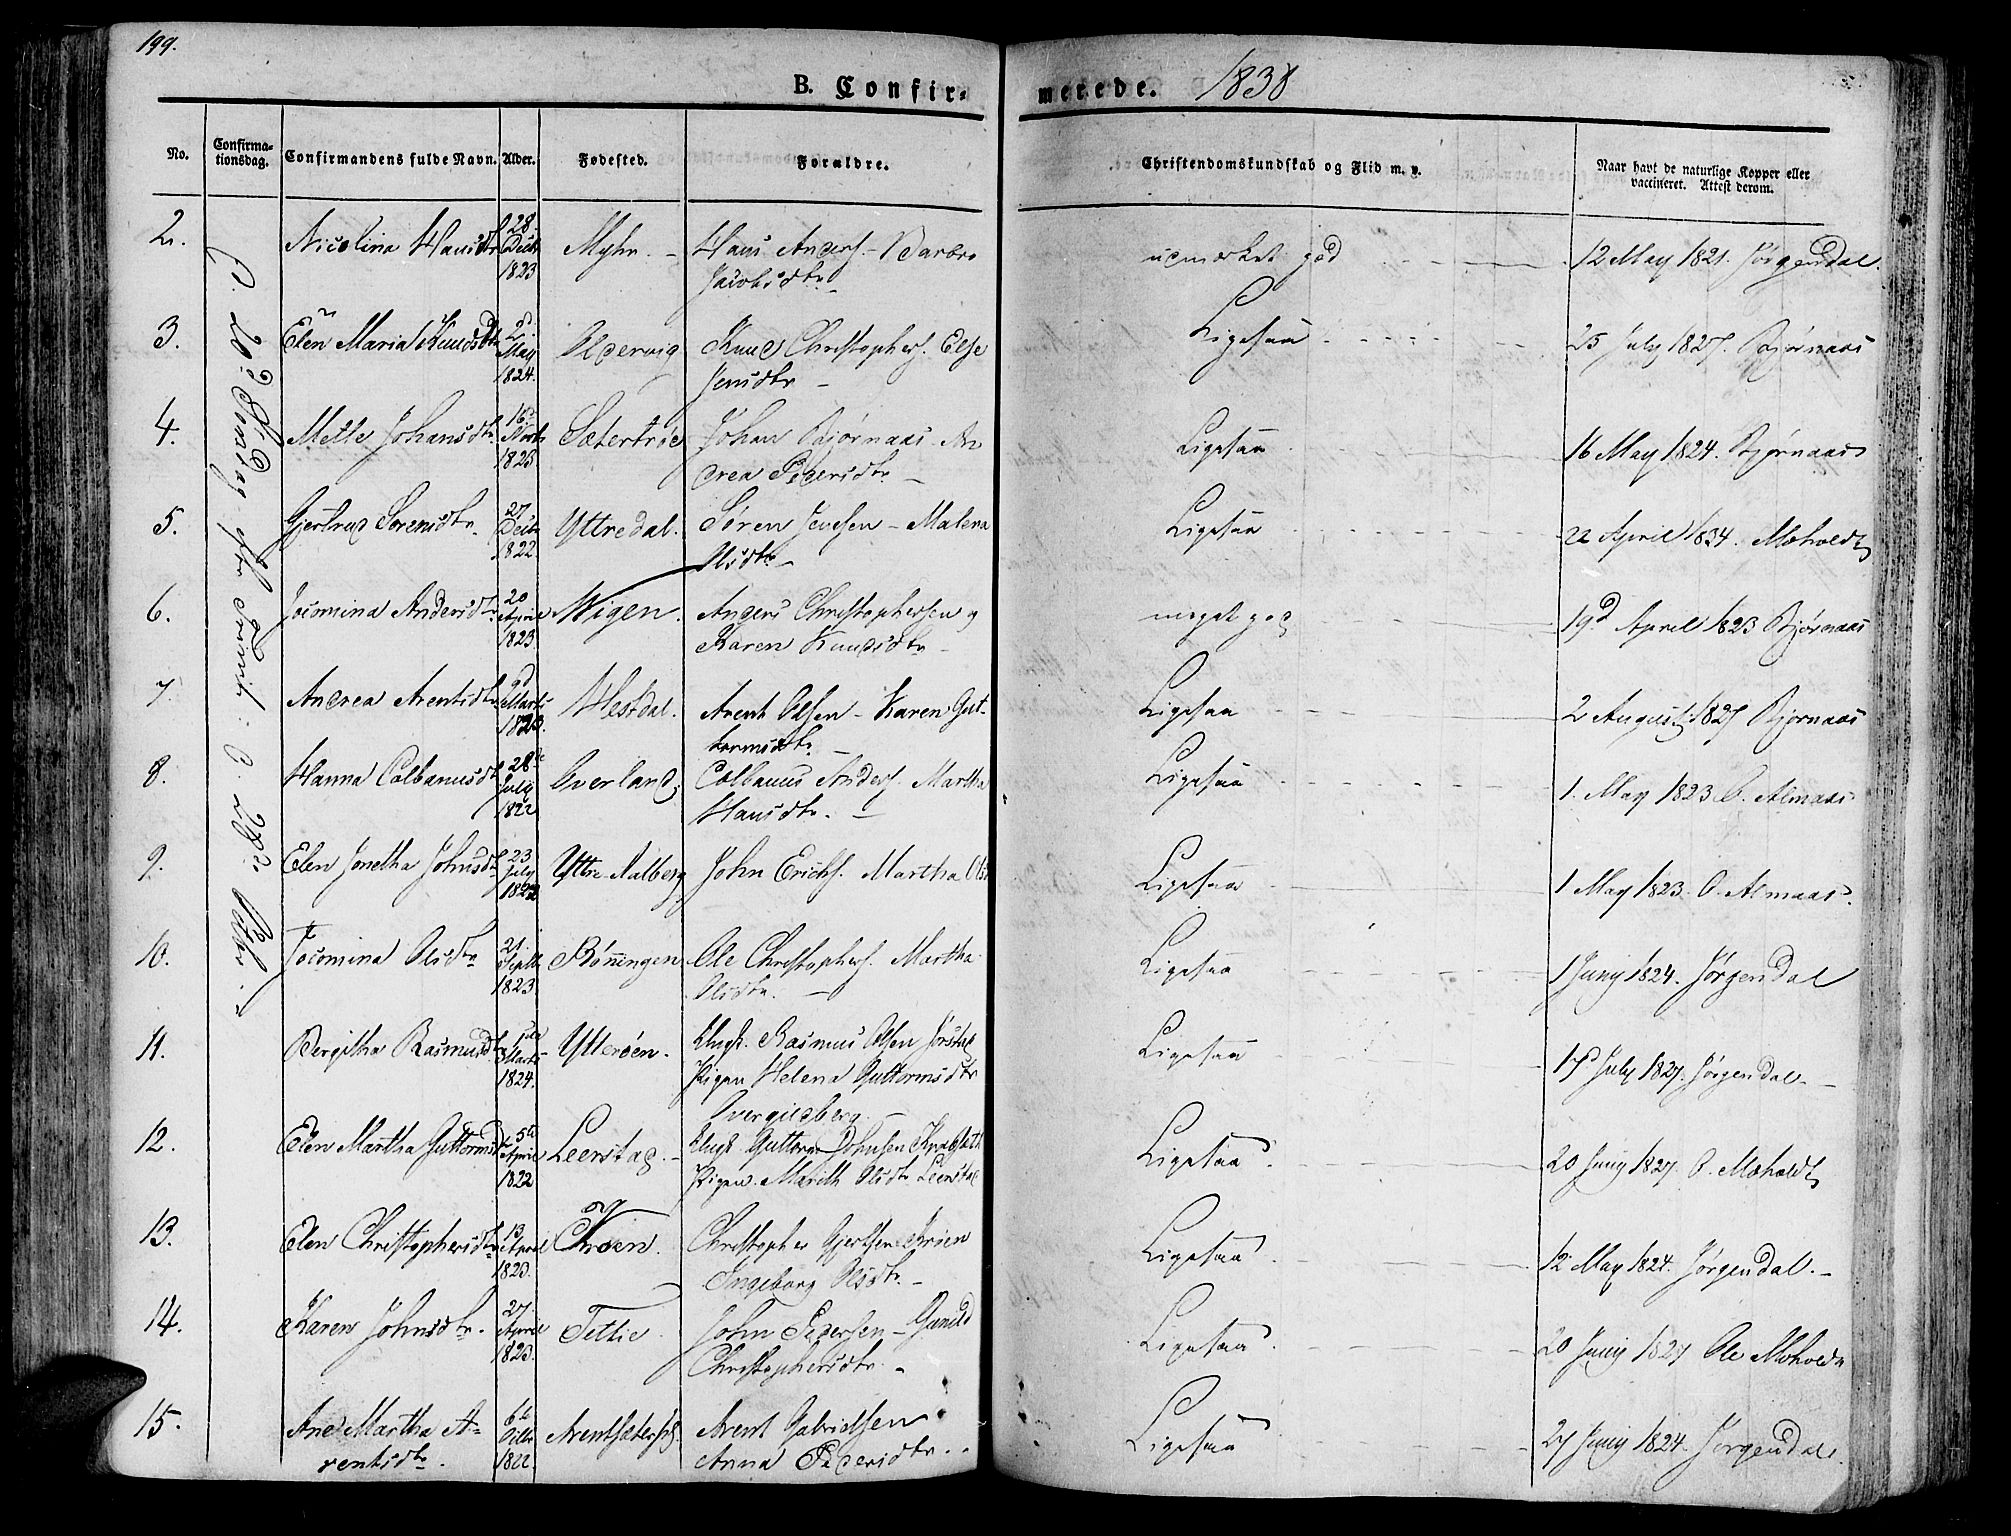 199.
B. Confir-
merede. 1838
No.
Confirma-
tionsdag.
Confirmandens fulde Navn.
Alder.
Fødested.
Forældre.
Christendomskundskab og Flid m. v.
Naar havt de naturlige Kopper eller
vaccineret. Attest derom.
2. Nicolina Hansdtr 28. Decbr 1823 Myhr. - Hans Anders. - Barbro
Jacobsdtr - udmærket god 12 May 1821. Jørgendal.
3. Elen Maria Knudsdtr 2d May 1824. Oldervig Knud Christophers. Else
Jensdtr - Ligesaa 25 July 1827. Bjørnaas
4. Mette Johansdtr. 16d Novbr 1823 Sætertrøe Johan Bjørnaas. An
drea Pedersdtr - Ligesaa 16 May 1824. Bjørnaas
5. Gjertrud Sørensdtr. 27 Decbr 1822. Yttredal. Søren Jensen - Malena
Olsdtr - Ligesaa 22 April 1834. Moholdt
6. Jocomina Andersdtr. 20 April 1823. Wigen. Anders Christophersen og
Karen Knudsdtr - meget god 19d April 1823 Bjørnaas
7. Andrea Arentsdtr 9d Marts 1823. Westdal. Arent Olsen - Karen Gut-
tormsdtr - Ligesaa 2 August 1827 Bjørnaas
8. Hanna Colbanusdtr 28de July 1822 Overland, Colbanus Anders. Martha
Hansdtr. - Ligesaa 1. May 1823 O. Almaas.
9. Elen Jonetha Johnsdtr 23 July 1822 Yttre-Aalberg John Erichs. Martha Ols Ligesaa 1 May 1823. O. Almaas.
10. Jocomina Olsdtr 21. Septbr 1823. Rønningen Ole Christophers. Martha
Olsdtr. - Ligesaa 1 Juny 1824. Jørgendal
11. Bergitha Rasmusdtr 1de Marts 1824. Ytterøen. Ungk. Rasmus Olsen Jørstad
Pigen Helena Guttormsdtr
Ligesaa 17d July 1827. Jørgendal. -
12. Elen Martha Guttormsdtr 5te April 1822 Leerstad. - Ungk. Guttorm Johnsen
Pigen. Mareth Olsdtr Leerstad Ligesaa 20 Juny 1827. O. Moholdt
13. Elen Christophersdtr 13 April 1823. Christopher Gjertsen
Ingeborg Olsdtr. - Ligesaa 12 May 1824. Jørgendal. -
14. Karen Johnsdtr. 27. April 1823. Tettlie. John Pedersen - Gunild
Christophersdtr. - Ligesaa 20 Juny 1827 Ole Moholdt
15. Ane Martha A-
rentsdtr. 6te Octbr 1822. Arent Gabrielsen
Anna Pedersdtr. Ligesaa 27 Juny 1824. Jørgendal.